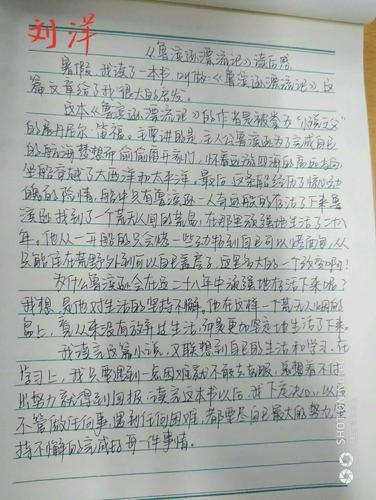 刘洋
《鲁滨逊漂流记》读后感
暑假,我读了一本书,叫做《鲁滨逊漂流记》这
篇文章给了我很大的启发。
这本《鲁滨逊漂流记》的作者是被称为"小说之父"
的展丹尼尔·笛福。主要讲的是:主人公鲁滨逊为了完成自己
的航海梦想而偷偷离开家门,怀着远游四海的高远志向,
坐船穿越了大西洋和太平洋。最后,这条船经历了惊心动
魄的险情,船中只有鲁滨逊一人奇迹般的存活了下来鲁
滨逊找到了一个荒无人烟的荒岛,在那里顽强地生活了二十八
年。他从一开始的只会
只能住在荒野外到可以自己盖房子,这是多大的一个改变啊!
为什么鲁滨逊会在这二十八年中顽强地存活下来呢?
我想,是他对生活的坚持不懈。他在这样一个荒无人烟的
岛上,着从来没有放弃过生活,而是更加坚定地生活了下来。
我读完这篇小说,又联想到自己的生活和学习,在
学习上,我只要遇到一点困难就不敢去克服,总想着不付
出努力就得到回报。读完这本书以后,我下定决心,以后
不管做任何事,遇到任何困难,都要尽自己最大的努力,坚
持不懈的完成好每一件事情。
SHOT ON